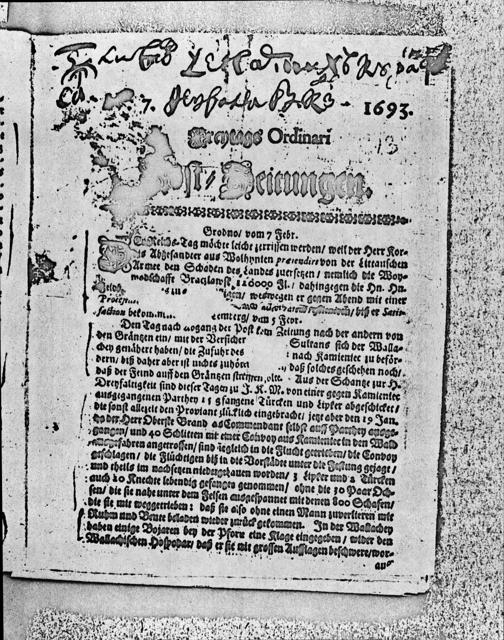 7. 1693.
Freytags Ordinari
13
Post-Zeitungen.
Grodno/ vom 7 Febr.
Reichs-Tag möchte leicht zerrissen werden/ weil der Herr Kor-
Abgesander aus Wolhynien prætendirt von der Littauschen
Armee den Schaden des Landes zuersetzen/ nemlich die Woy-
wodschafft Braclawsk 126000 Fl. dahingegen die Hn. Hn.
weswegen er gegen Abend mit einer
Protest. biß er Satis-
faction bekomm. Lemberg/ vom 5 Febr.
Den Tag nach Abgang der Post kam Zeitung nach der andern von
den Gräntzen ein/ mit der Versicher Sultans sich der Walla-
chey genähert haben/ die Zufuhr des nach Kamieniec zu beför-
dern/ biß daher aber ist nichts zuhören daß solches geschehen noch/
daß der Feind auff den Gräntzen streiffen solte. Aus der Schantze zur H.
Dreyfaltigkeit sind dieser Tagen zu J. K. M. von einer gegen Kamieniec
ausgegangenen Parthey 15 gefangene Türcken und Lipker abgeschicket/
die sonst allezeit den Proviant glücklich eingebracht; jetzt aber den 19 Jan.
der Herr Oberste Brand als Commendant selbst auff Parthey ausge-
gangen/ und 40 Schlitten mit einer Convoy aus Kamieniec in den Wald
angefahren angetroffen/ sind sogleich in die Flucht getrieben/ die Convoy
geschlagen/ die Flüchtigen biß in die Vorstädte unter die Festung gejagt/
und theils im nachsetzen niedergehauen worden/ 3 Lipker und 2 Türcken
auch 10 Knechte lebendig gefangen genommen/ ohne die 30 Paar Och-
sen/ die sie nahe unter dem Felsen ausgespannet mit denen 800 Schafen/
die sie mit weggetrieben: daß sie also ohne einen Mann zuverlieren mit
Ruhm und Beute beladen wieder zurück gekommen. In der Wallachey
haben einige Bojaren bey der Pforte eine Klage eingegeben/ wider den
Wallachischen Hospodar/ daß er sie mit grossen Aufflagen beschwere/ wor-
auf